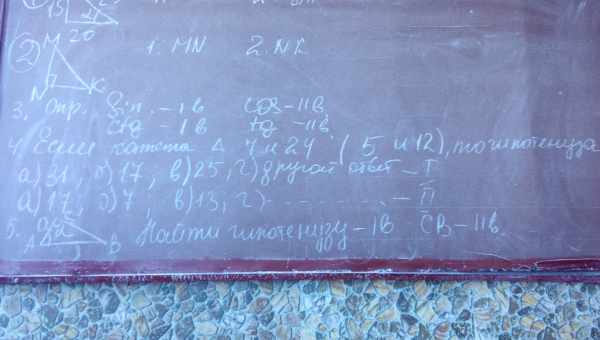 15 20
M 20
2 1. MN 2. NK
N K
3. Опр. Sin - I в Cos - II в
Ctg - I в tg - II в
4. Если катета Δ 7 и 24 (5 и 12), то гипотенуза
а) 31, б) 17, в) 25, г) другой ответ - I
а) 17, б) 7, в) 13, г) - II
5. A B Найти гипотенузу - I в CB - II в.